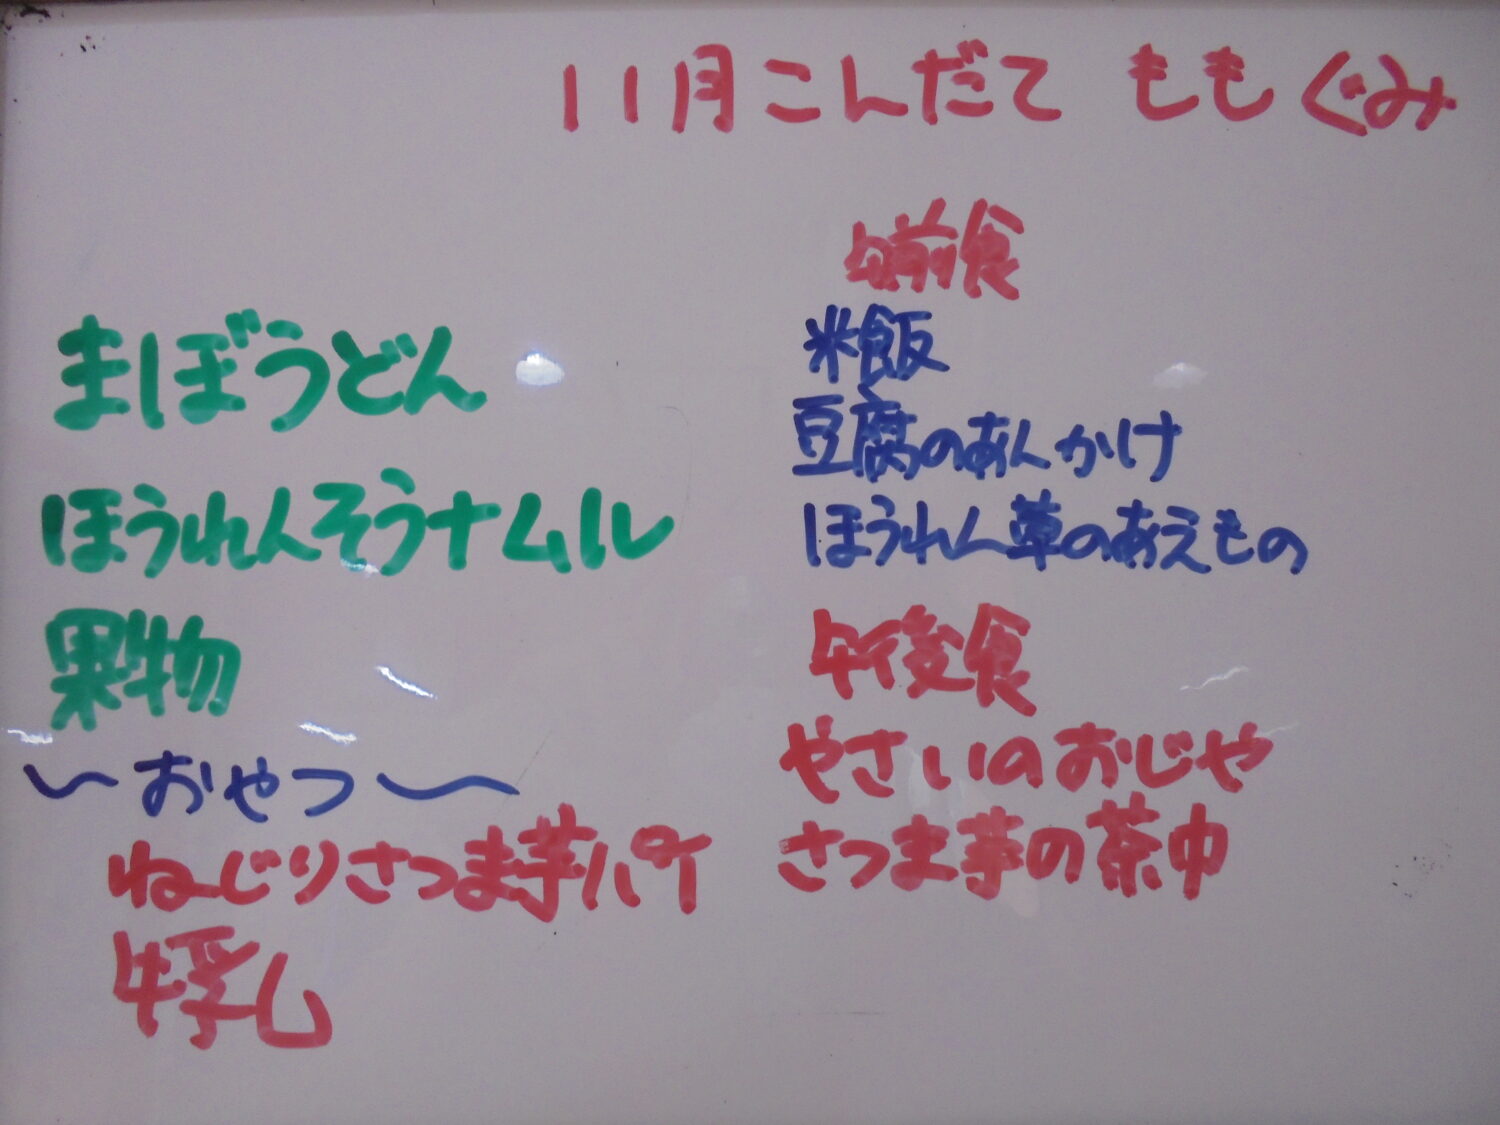 11月こんだて ももぐみ
まぼうどん
ほうれんそうナムル
果物
〜おやつ〜
ねじりさつま芋パイ
牛乳
午前食
米飯
豆腐のあんかけ
ほうれん草のあえもの
午後食
やさいのおじや
さつま芋の茶巾